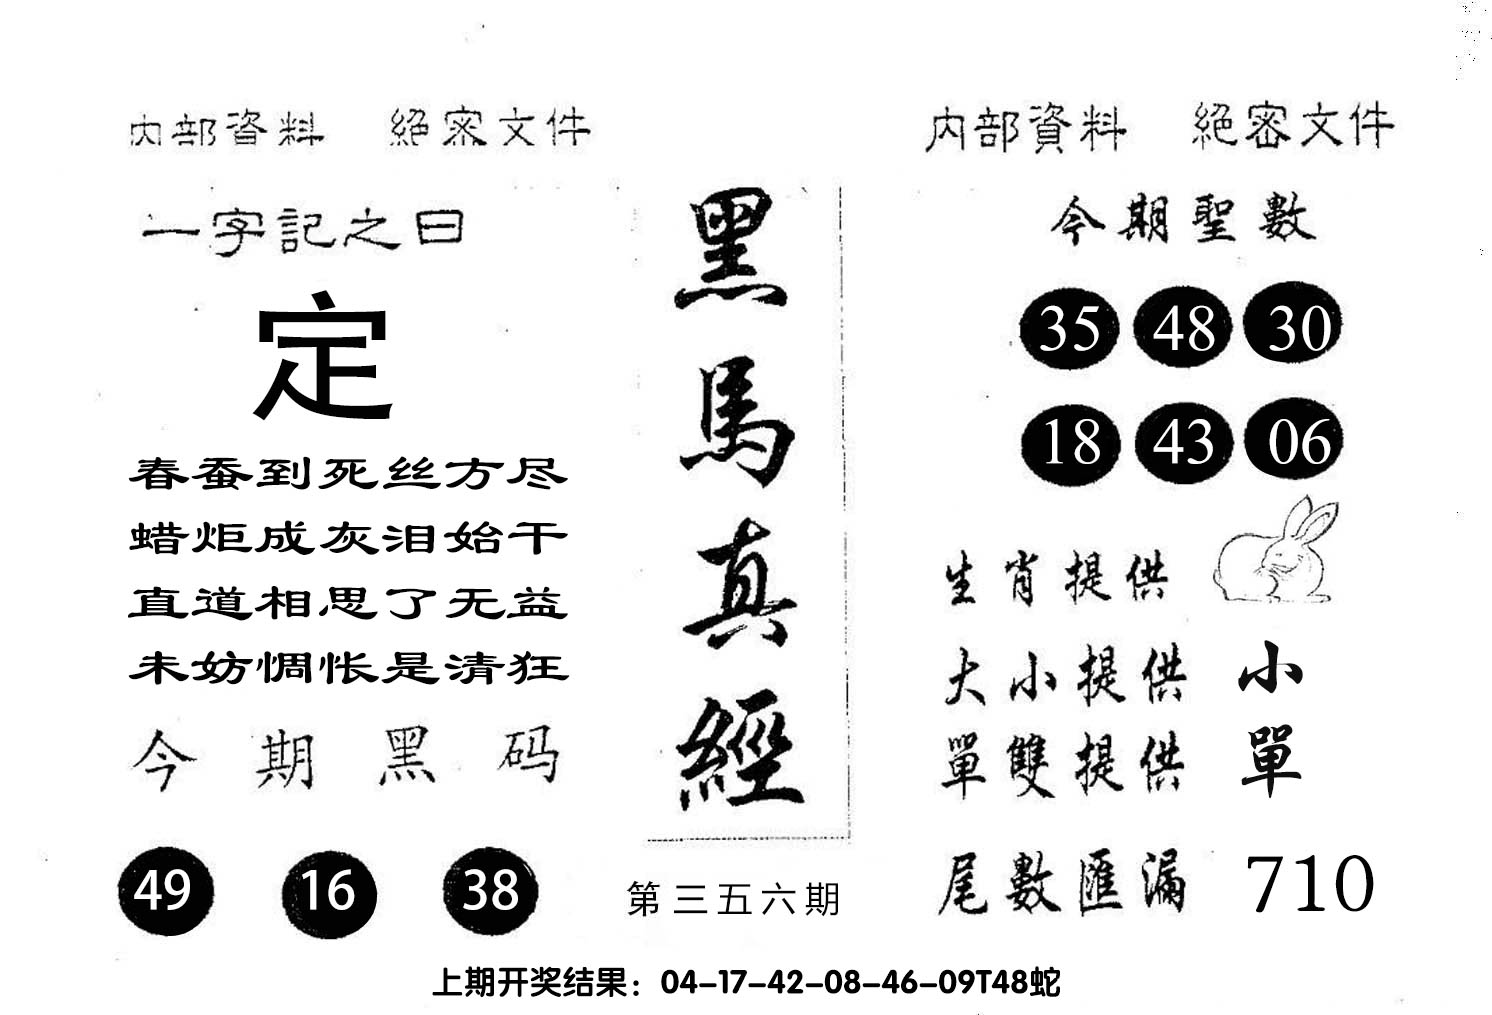 内部資料 絕密文件
一字記之曰
定
春蚕到死丝方尽
蜡炬成灰泪始干
直道相思了无益
未妨惆怅是清狂
今期黑码
49 16 38
黑馬真經
第三五六期
内部資料 絕密文件
今期聖數
35 48 30
18 43 06
生肖提供
大小提供 小
單雙提供 單
尾數匯漏 710
上期开奖结果：04-17-42-08-46-09T48蛇